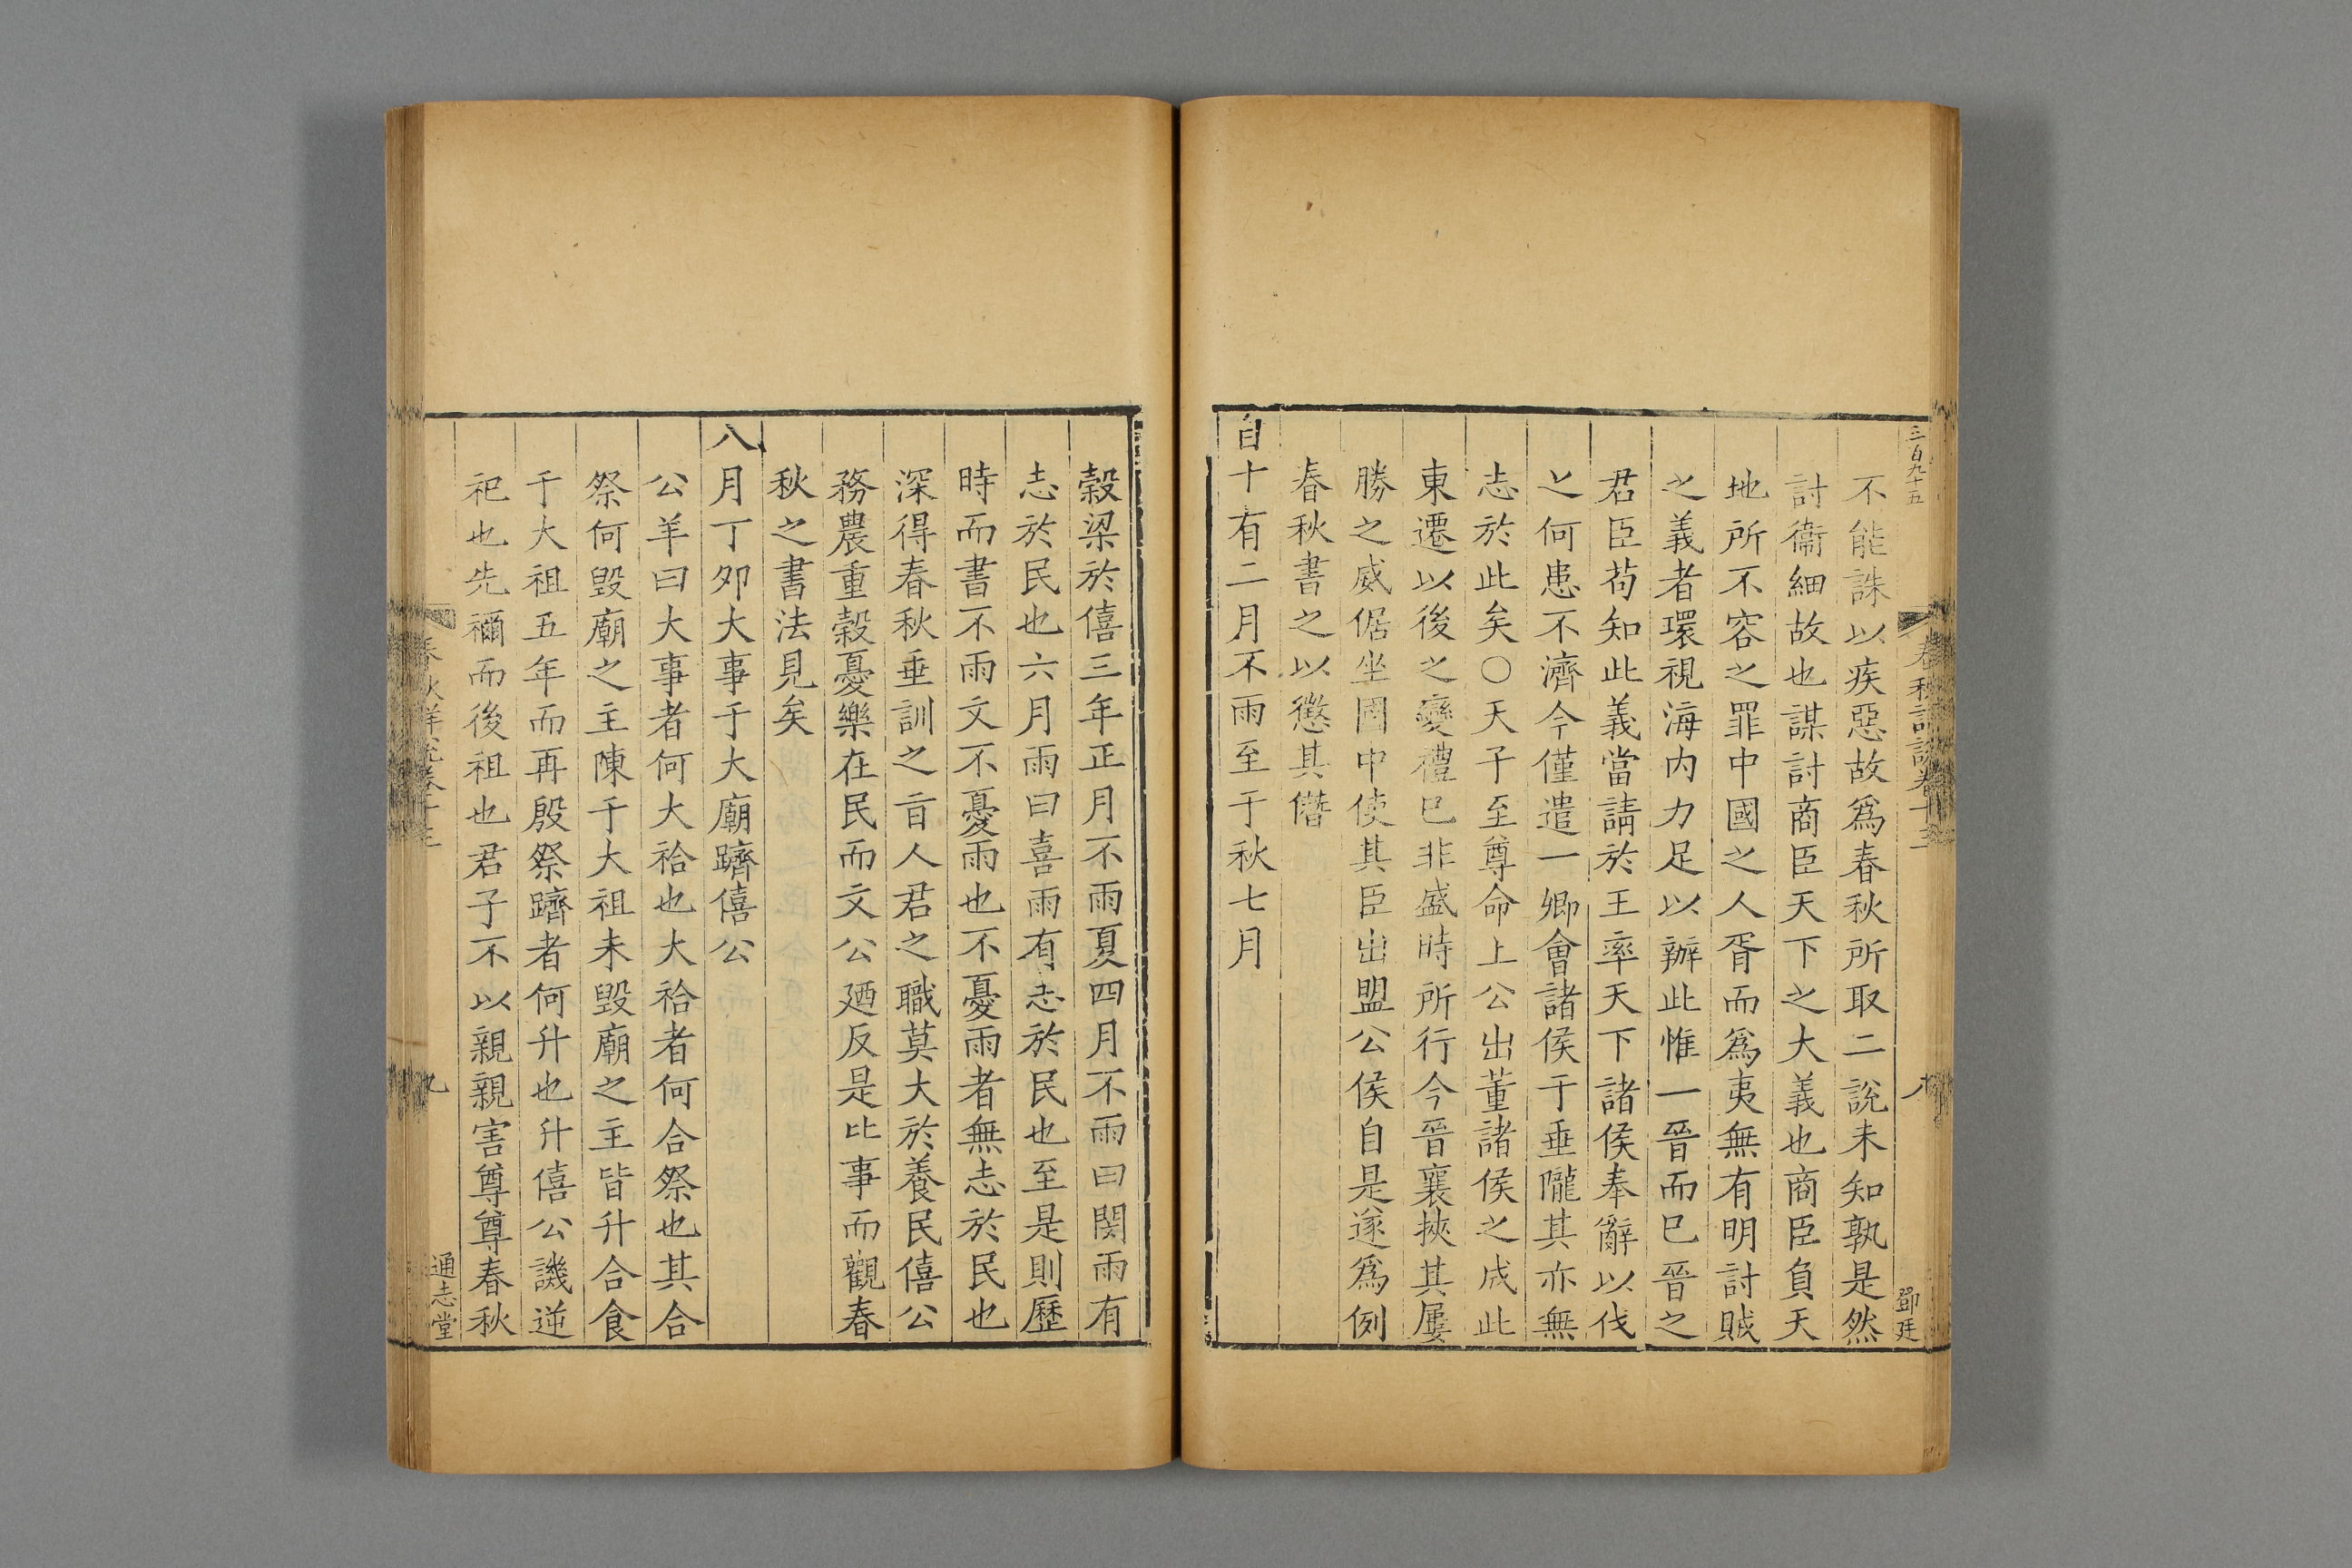 三百九十五
春秋詳說卷十三
八
鄧廷
不能誅以疾惡故爲春秋所取二說未知孰是然
討衞細故也謀討商臣天下之大義也商臣負天
地所不容之罪中國之人胥而爲夷無有明討賊
之義者環視海内力足以辦此惟一晉而巳晉之
君臣茍知此義當請於王率天下諸侯奉辭以伐
之何患不濟今僅遣一卿會諸侯于垂隴其亦無
志於此矣○天子至尊命上公出董諸侯之成此
東遷以後之變禮巳非盛時所行今晉襄挾其屢
勝之威倨坐國中使其臣出盟公侯自是遂爲例
春秋書之以懲其僭
自十有二月不雨至于秋七月
穀梁於僖三年正月不雨夏四月不雨曰閔雨有
志於民也六月雨曰喜雨有志於民也至是則歷
時而書不雨文不憂雨也不憂雨者無志於民也
深得春秋垂訓之旨人君之職莫大於養民僖公
務農重穀憂樂在民而文公廼反是比事而觀春
秋之書法見矣
八月丁夘大事于大廟躋僖公
公羊曰大事者何大祫也大祫者何合祭也其合
祭何毀廟之主陳于大祖未毀廟之主皆升合食
于大祖五年而再殷祭躋者何升也升僖公譏逆
祀也先禰而後祖也君子不以親親害尊尊春秋
春秋詳說卷十三
九
通志堂